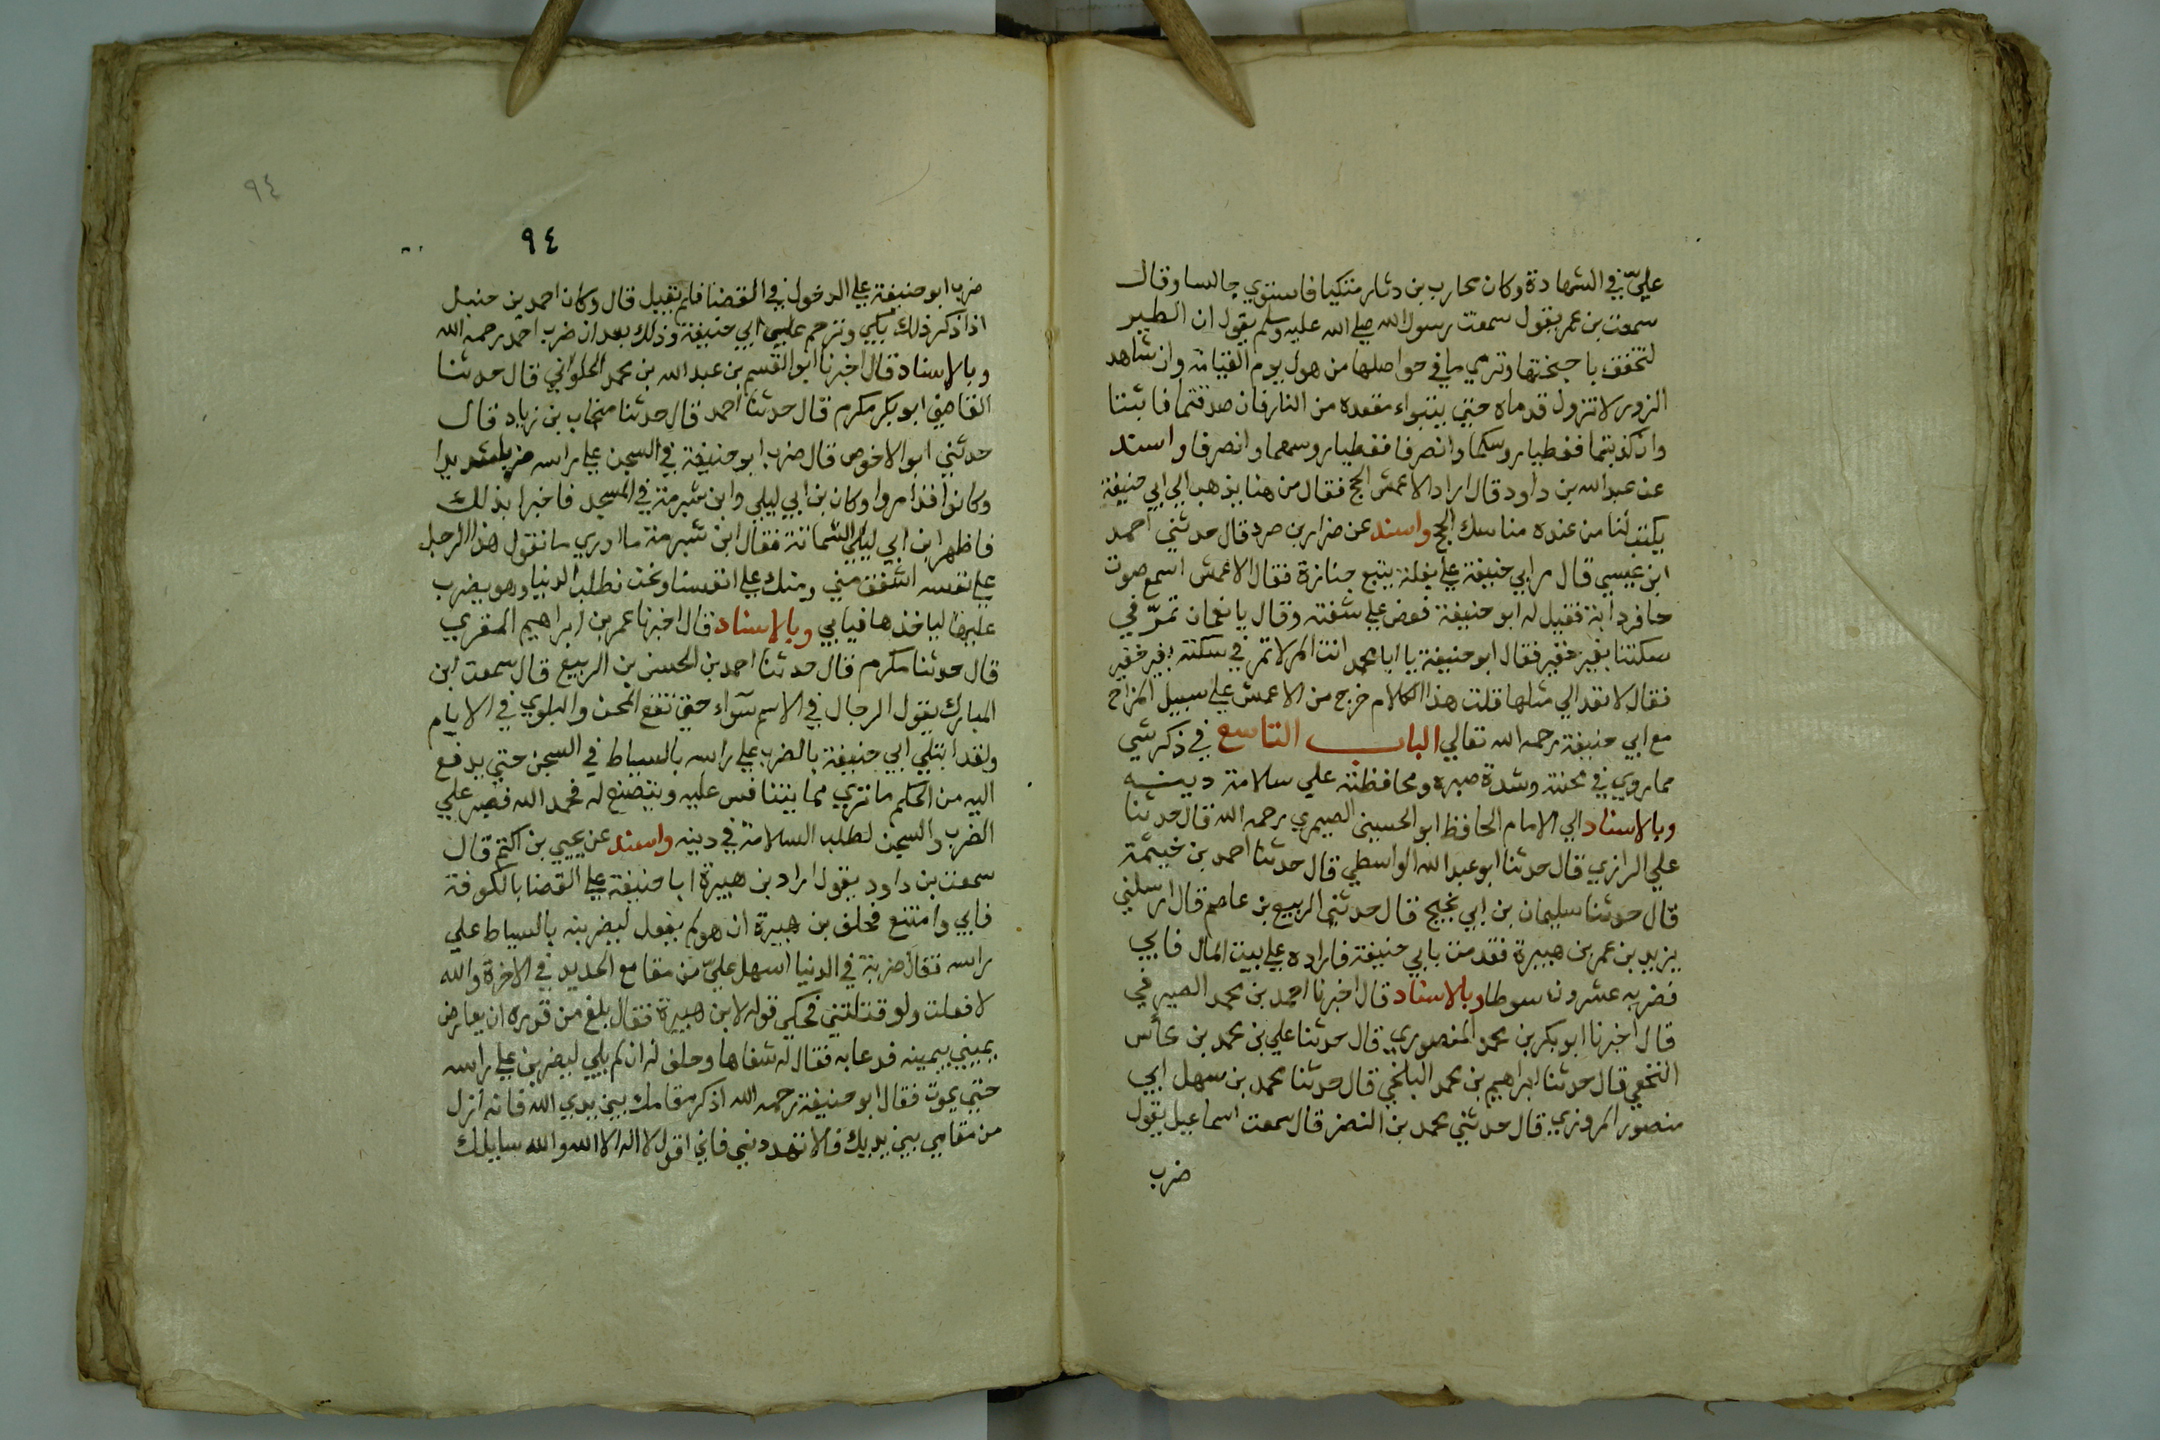 عليّ في الشهادة وكان محارب بن دثار متكيا فاستوي جالسا وقال
سمعت بن عمر يقول سمعت رسول الله صلي الله عليه وسلم يقول ان الطير
لتخفق باجنحتها وترمي ما في حواصلها من هول يوم القيامة وان شاهد
الزور لا تزول قدماه حتي يتبواء مقعده من النار فان صدقتما فاثبتا
وان كذبتما فغطيا روسكما وانصرفا فغطيا روسهما وانصرفا واسند
عن عبد الله بن داود قال اراد الاعمش الحج فقال من هنا يذهب الي ابي حنيفة
يكتب لنا من عنده مناسك الحج واسند عن ضرار بن صرد قال حدثني احمد
ابن عيسي قال مر ابي حنيفة علي بغلة يتبع جنازة فقال الاعمش اسمع صوت
حافر دابة فقيل له ابو حنيفة فعض علي شفته وقال يا نعمان تمرّ في
سكتنا بغير خفير فقال ابو حنيفة يا ابا محمد انت المر لا تمر في سكته بغير خفير
فقال لا تعد الي مثلها قلت هذا الكلام خرج من الاعمش علي سبيل المزاح
مع ابي حنيفة رحمه الله تعالي الباب التاسع في ذكر شي
مما روي في محنته وشدة صبره ومحافظته علي سلامة دينه
وبالاسناد الي الامام الحافظ ابو الحسين الصيمري رحمه الله قال حدثنا
علي الرازي قال حدثنا ابو عبد الله الواسطي قال حدثنا احمد بن خيثمة
قال حدثنا سليمان بن ابي نجيح قال حدثني الربيع بن عاصم قال ارسلني
يزيد بن عمر بن هبيرة فقدمت بابي حنيفة فاراده علي بيت المال فابي
فضربه عشرون سوطا وبالاسناد قال اخبرنا احمد بن محمد الصيرفي
قال اخبرنا ابو بكر بن محمد المنصوري قال حدثنا علي بن محمد بن كأس
النخعي قال حدثنا ابراهيم بن محمد البلخي قال حدثنا محمد بن سهل ابي
منصور المروزي قال حدثني محمد بن النضر قال سمعت اسماعيل يقول
ضرب
٩٤
٩٤
ضرب ابو حنيفة علي الدخول في القضا فلم يقبل قال وكان احمد بن حنبل
اذا ذكر ذلك بكي وترحم علي ابي حنيفة وذلك بعد ان ضرب احمد رحمه الله
وبالاسناد قال اخبرنا ابو القسم بن عبد الله بن محمد الحلواني قال حدثنا
القاضي ابو بكر مكرم قال حدثنا احمد قال حدثنا منجاب بن زياد قال
حدثني ابو الاخوص قال ضرب ابو حنيفة في السجن علي راسه ضربا شديدا
وكانوا قد امروا وكان بن ابي ليلي وابن شبرمة في المسجد فاخبرا بذلك
فاظهر ابن ابي ليلي الشماتة فقال ابن شبرمة ما ادري ما تقول هذا الرجل
علي نفسه اشفق مني ومنك علي انفسنا ونحن نطلب الدنيا وهو يضرب
عليها لياخذها فيابي وبالاسناد قال اخبرنا عمر بن ابراهيم المقري
قال حدثنا مكرم قال حدثنا احمد بن الحسن بن الربيع قال سمعت ابن
المبارك يقول الرجال في الاسم سوآء حتي تقع المحن والبلوي في الايام
ولقد ابتلي ابي حنيفة بالضرب علي راسه بالسياط في السجن حتي يدفع
اليه من الحكم ما تري مما يتنافس عليه ويتصنع له فحمد الله فصبر علي
الضرب والسجن لطلب السلامة في دينه واسند عن يحيي بن اكثم قال
سمعت بن داود يقول اراد بن هبيرة ابا حنيفة علي القضا بالكوفة
فابي وامتنع فحلف بن هبيرة ان هو لم يفعل ليضربنه بالسياط علي
راسه فقال ضربة في الدنيا اسهل عليّ من مقامع الحديد في الاخرة والله
لا فعلت ولو قتلتني فحكي قوله لابن هبيرة فقال بلغ من قدره ان يعارض
يميني بيمينه فدعا به فقال له شفاها وحلف له ان لم يلي ليضربن علي راسه
حتي يموت فقال ابو حنيفة رحمه الله اذكر مقامك بين يدي الله فانه اذل
من مقامي بين يديك فلا تهددني فاني اقول لا اله الا الله والله سايلك